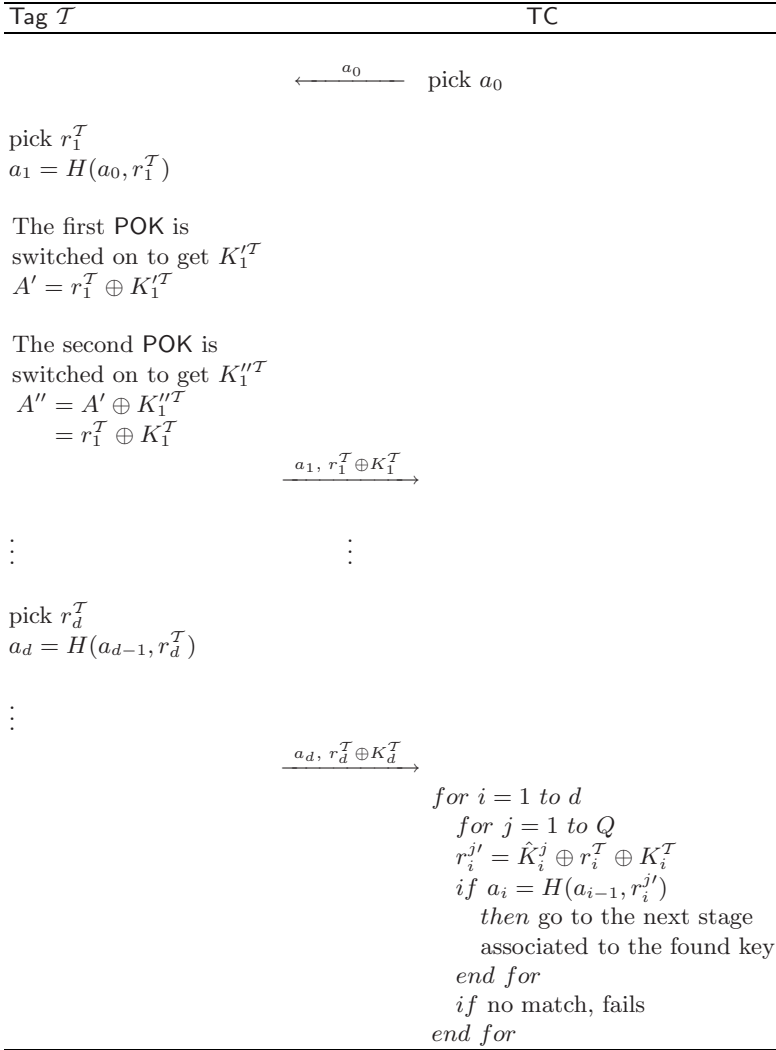 Tag 𝒯 TC
a_0
pick a_0
pick r_1^𝒯
a_1 = H(a_0, r_1^𝒯)
The first POK is
switched on to get K_1'^𝒯
A' = r_1^𝒯 ⊕ K_1'^𝒯
The second POK is
switched on to get K_1''^𝒯
A'' = A' ⊕ K_1''^𝒯
= r_1^𝒯 ⊕ K_1^𝒯
a_1, r_1^𝒯 ⊕ K_1^𝒯
⋮ ⋮
pick r_d^𝒯
a_d = H(a_{d-1}, r_d^𝒯)
⋮
a_d, r_d^𝒯 ⊕ K_d^𝒯
for i = 1 to d
for j = 1 to Q
r_i^{j'} = K̂_i^j ⊕ r_i^𝒯 ⊕ K_i^𝒯
if a_i = H(a_{i-1}, r_i^{j'})
then go to the next stage
associated to the found key
end for
if no match, fails
end for